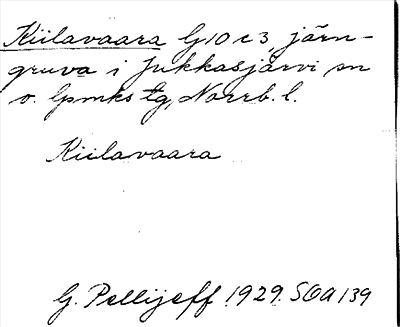 Kiilavaara G10 c3, järn-
gruva i Jukkasjärvi sn
o. lpmks tg, Norrb. l.
Kiilavaara
G. Pellijeff 1929. SOA 139